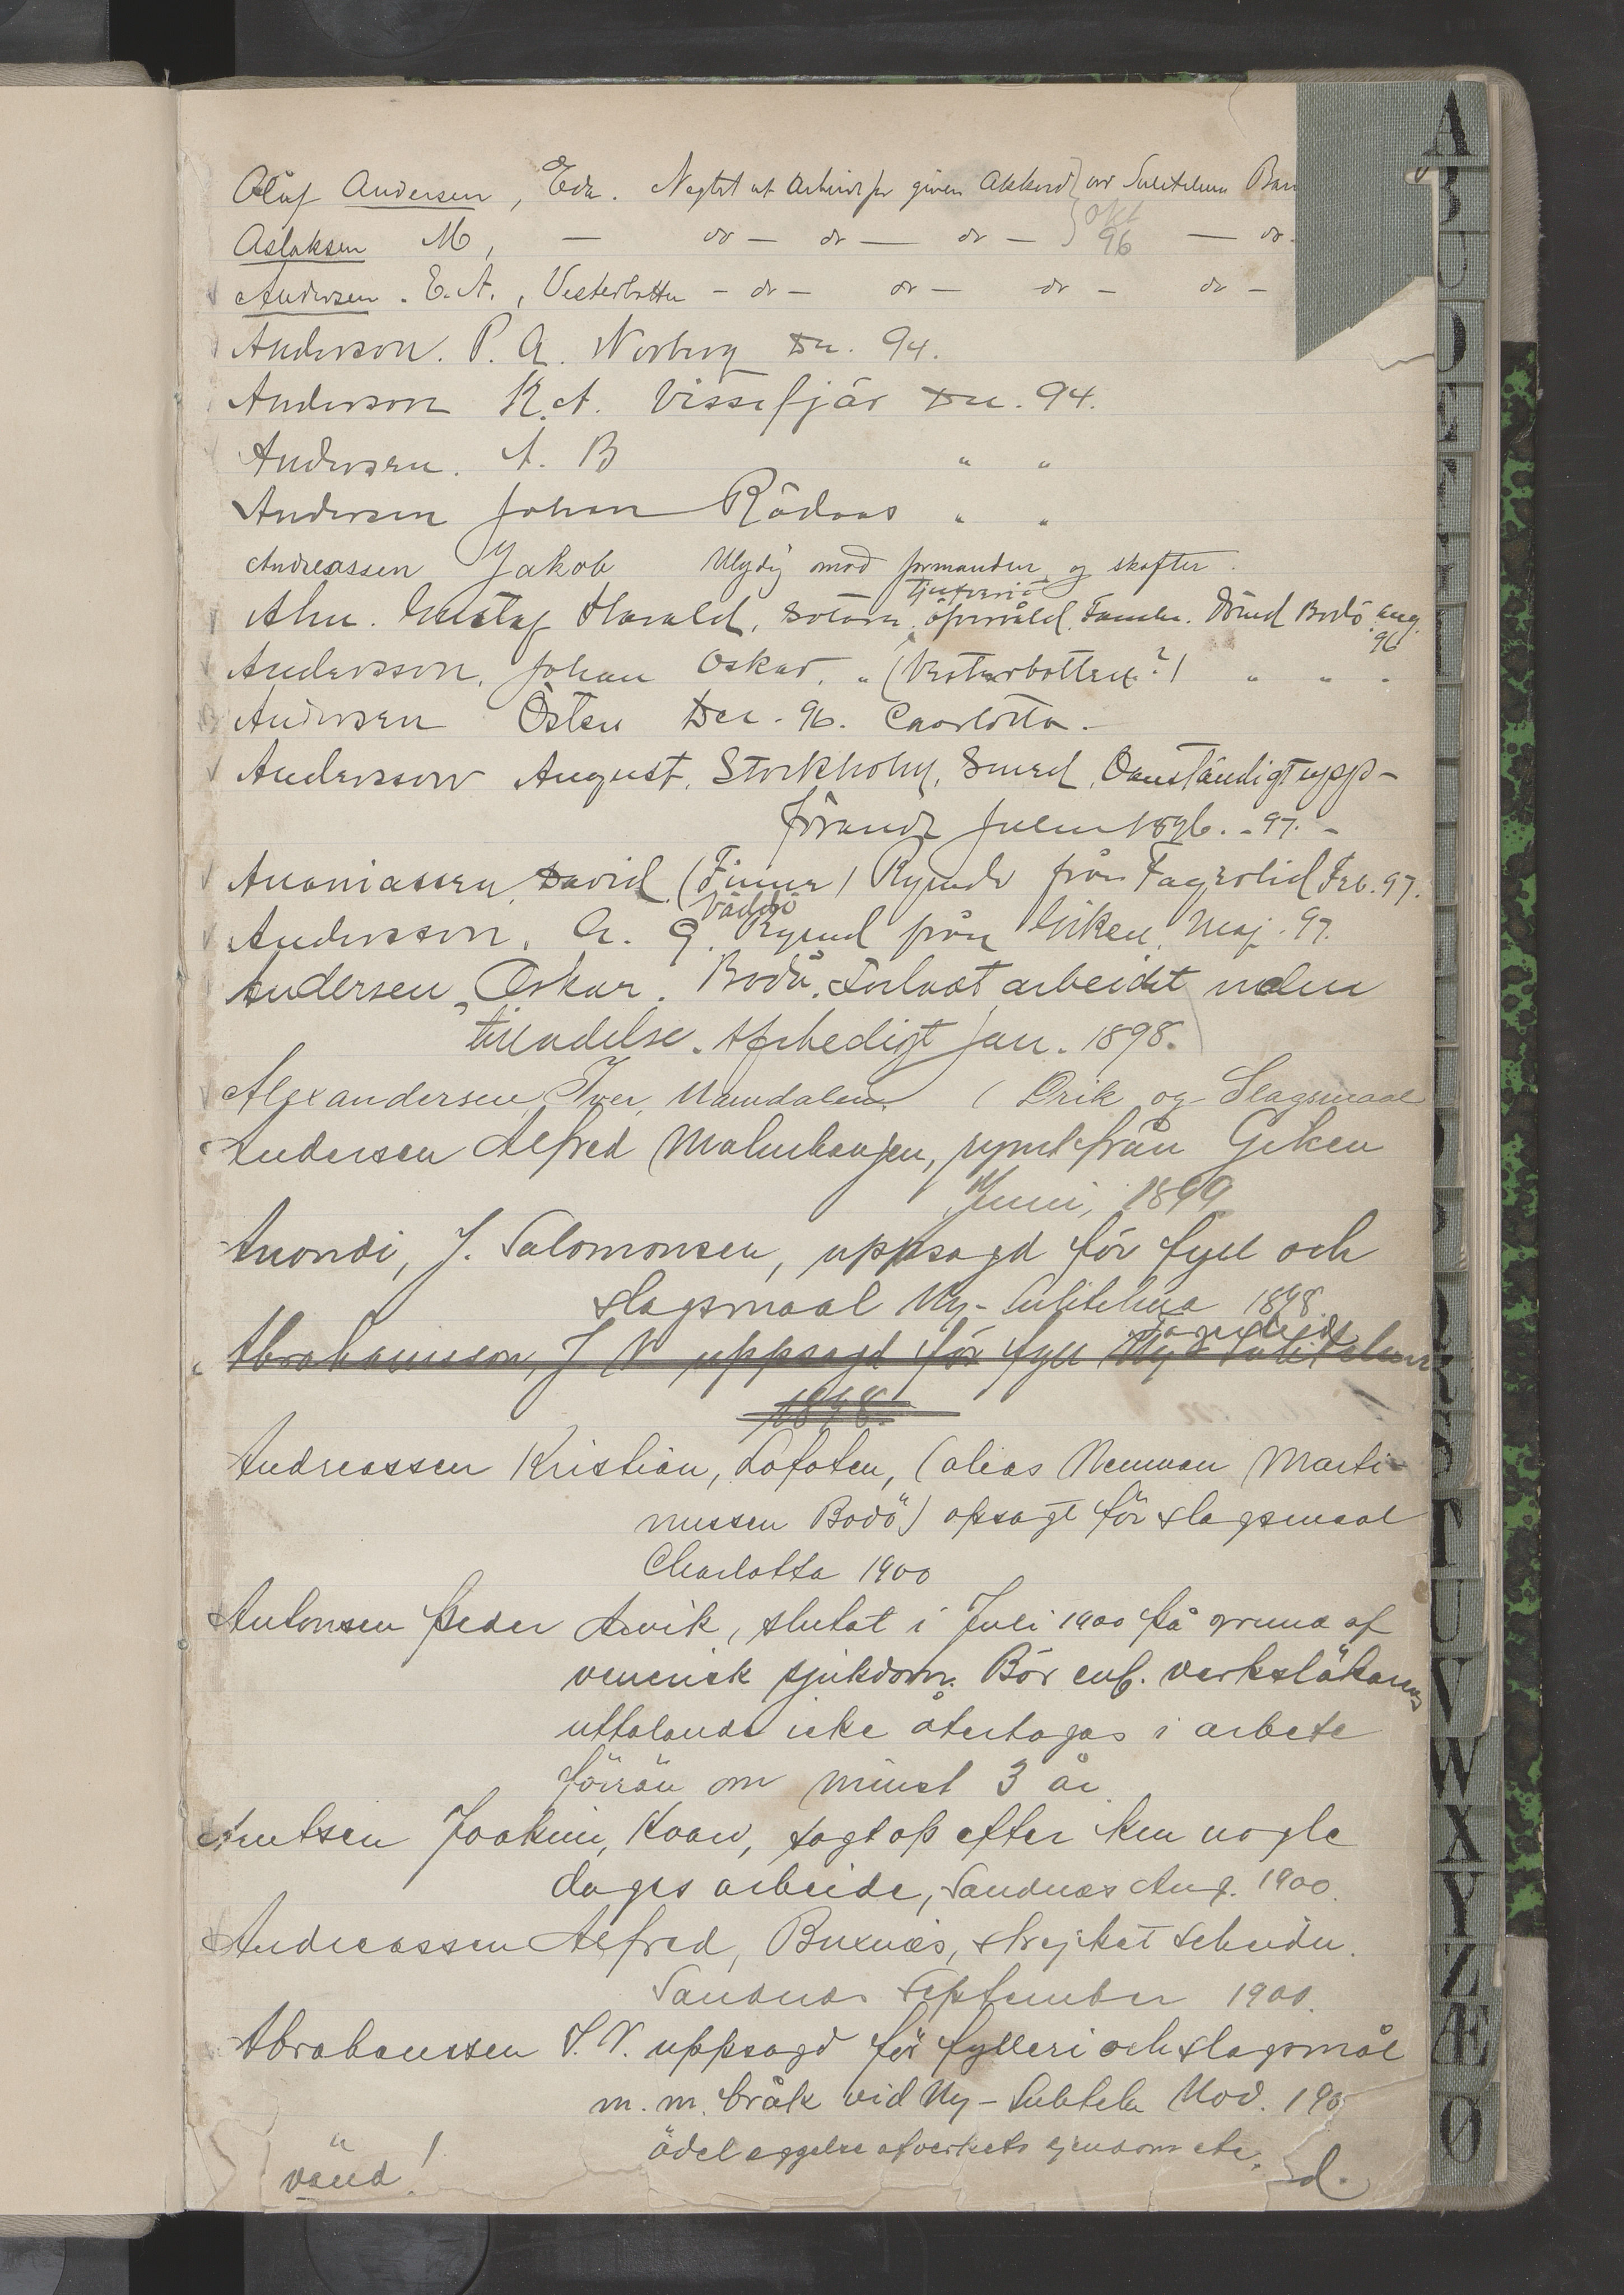 Oluf Andersen, Eda. Negtet at Arbeide for given Akkord } ved Sulitelma Ban
Aslaksen M, — do — do — do — } Okt 96 — do.
Andersen. E. A., Vesterbotten — do — do — do — do —
Anderson. P. A. Norberg Dec. 94.
Anderson K. A. Vissefjär Dec. 94.
Andersen. A. B " "
Andersen Johan Rödaas " "
Andreassen Jakob Ulydig mod formanden og skofter.
tjufveri o
Alm. Gustaf Harald, öfvervåld. Dömd Bodö Aug. 96
Andersson, Johan Oskar, " (Vesterbotten?) " " "
Andersen Östen Dec. 96. Charlotta.
Andersson August, Stockholm, Smed, Oanständigt upp-
förande Julen 1896. - 97. -
Ananiassen, David, (Finne) Rymde från Fagerlid Feb. 97.
Väddö
Andersson, A. G. Rymd från Giken, Maj. 97.
Andersen, Oskar. Bodö. Forlaat arbeidet uden
tilladelse. Afskediget Jan. 1898.
Alexandersen, Iver, Namdalen (Drik og Slagsmaal
Andersen Alfred Malmhaugen, rymt från Giken
Juni, 1899
Amondi, J. Salomonsen, uppsagd för fyll och
slagsmaal Ny-Sulitelma 1898.
Abrahamsson, J N uppsagd för fyll Ny Sulitelma
1898.
Andreassen Kristian, Lofoten, (alias Neuman Marti-
nussen Bodö) opsagt för slagsmaal
Charlotta 1900
Antonsen Peder Arvik, slutat i Juli 1900 på grund af
venerisk sjukdom. Bör enl. verksläkarens
uttalande icke återtagas i arbete
förrän om minst 3 år.
Arntsen Joakim, sagt op efter kun nogle
dages arbeide, Sandnes Aug. 1900.
Andreassen Alfred, Buxnæs, strejket Scheidn.
Sandnes September 1900.
Abrahamssen J. N. uppsagd för fylleri och slagsmål
m. m. bråk vid Ny-Sulitelm Nov. 190
ödeleggelse af verkets ejendom etc.
vänd! d.